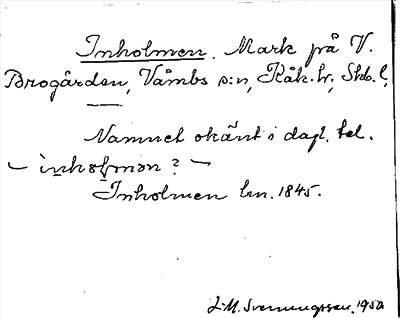 Inholmen. Mark på V.
Brogården, Våmbs s:n, Kåk. hr, Skb. l.
—
Namnet okänt i dagl. tal.
– inholmən? –
Inholmen lm. 1845.
L. M. Svenungsson. 1950